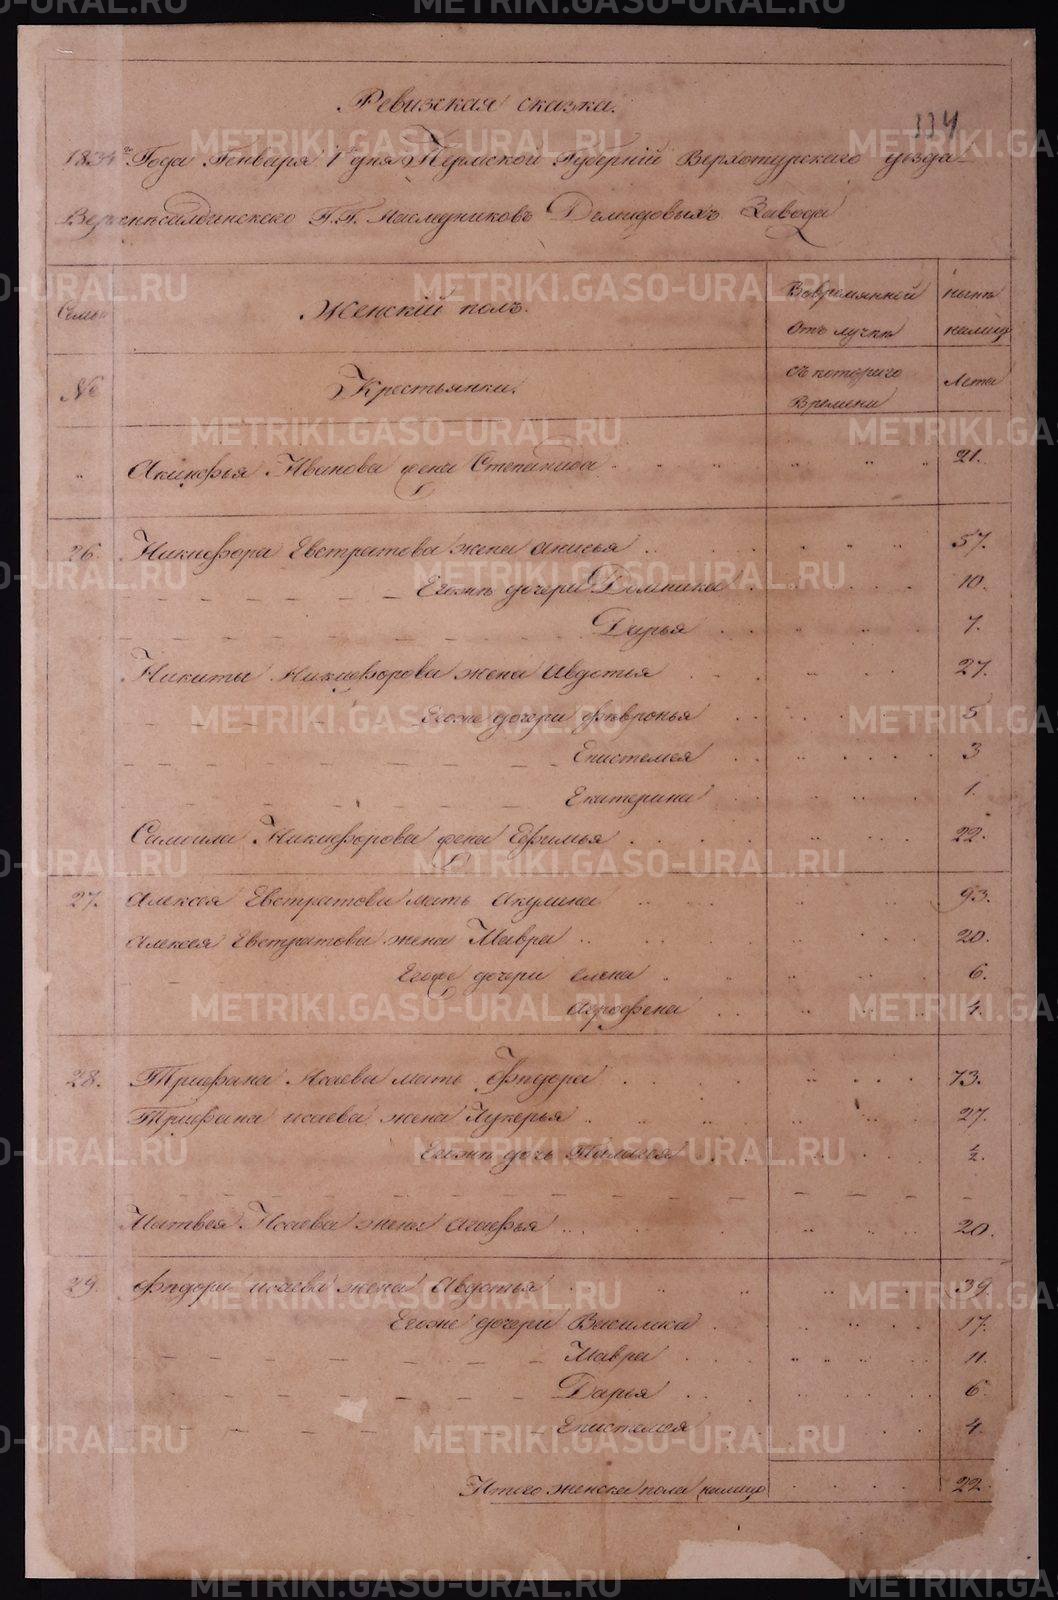 Ревизская сказка.
114
1834го Года Генваря 1го дня Пермской Губернiй Верхотурского уезда
Верхнѣсалдинского Г.Г. Наследниковъ Демидовыхъ Завода
Семьи Женскiй полъ. Вовремянной отъ лучкѣ нынѣ налицо
№ Крестьянки. съ которого времени Лета
" Иванова жена Степанида 21.
26. Никифора Евстратова жена Анисья 57.
Егожѣ дочери Домника 10.
Дарья 7.
Никиты Никифорова жена Авдотья 27.
Егоже дочери Фѣвронья 5
Епистемея 3
Екатерина 1.
Самоила Никифорова жена Ефимья 22.
27. Алексея Евстратова мать Акулина 93.
Алексея Евстратова жена Мавра 20.
Егоже дочери Елена 6.
Аграфена 4.
28. Трифана Исаева мать Фѣдора 73.
Трифана исаева жена Лукерья 27.
Егожѣ дочь 1/2.
Матвея Исаева жена Агафья 20.
29. Фѣдора исаева жена Авдотья 39.
Егоже дочери Василиса 17.
Мавра 11.
Дарья 6.
Епистемея 4.
Итого женска пола налицо 22.
METRIKI.GASO-URAL.RU